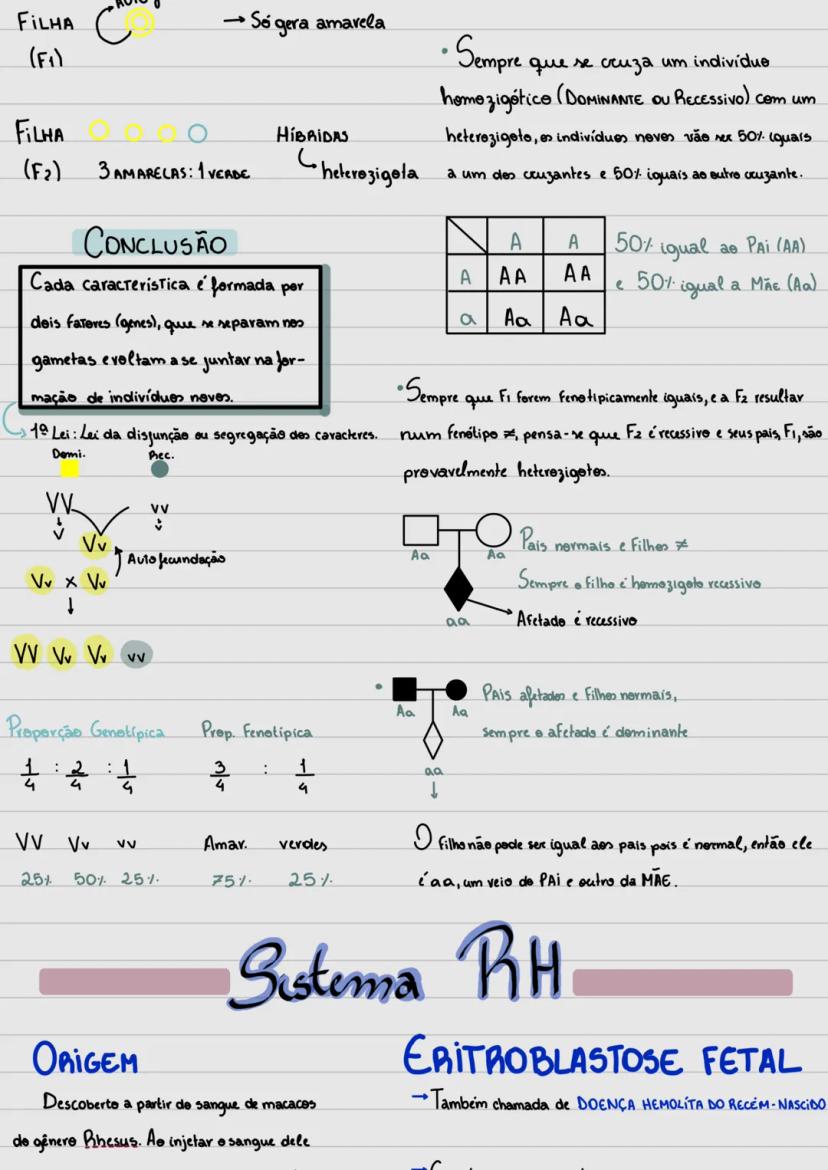 FILHA → Só gera amarela
(F1)
FILHA HÍBRIDAS
(F2) 3 AMARELAS: 1 VERDE heterozigota
CONCLUSÃO
Cada característica é formada por
dois fatores (genes), que se separam nos
gametas e voltam a se juntar na for-
mação de indivíduos novos.
1ª Lei: Lei da disjunção ou segregação dos caracteres.
Domi. Rec.
VV vv
v v
Vv
Autofecundação
Vv x Vv
↓
VV Vv Vv vv
Proporção Genotípica Prop. Fenotípica
1/4 : 2/4 : 1/4 3/4 : 1/4
VV Vv vv Amar. verdes
25% 50% 25% 75% 25%
• Sempre que se cruza um indivíduo
homozigótico (DOMINANTE OU RECESSIVO) com um
heterozigoto, os indivíduos novos vão ser 50% iguais
a um dos cruzantes e 50% iguais ao outro cruzante.
A A
A AA AA
a Aa Aa
50% igual ao PAI (AA)
e 50% igual a MÃE (Aa)
• Sempre que F1 forem fenotipicamente iguais, e a F2 resultar
num fenótipo ≠, pensa-se que F2 é recessivo e seus pais, F1, são
provavelmente heterozigotos.
Aa Aa
Pais normais e Filhos ≠
Sempre o filho é homozigoto recessivo
Afetado é recessivo
aa
• Aa Aa
PAIS afetados e Filhos normais,
sempre o afetado é dominante
aa
↓
O filho não pode ser igual aos pais pois é normal, então ele
é aa, um veio do PAI e outro da MÃE.
Sistema RH
ORIGEM
Descoberto a partir do sangue de macacos
do gênero Rhesus. Ao injetar o sangue dele
ERITROBLASTOSE FETAL
→ Também chamada de DOENÇA HEMOLÍTA DO RECÉM-NASCIDO